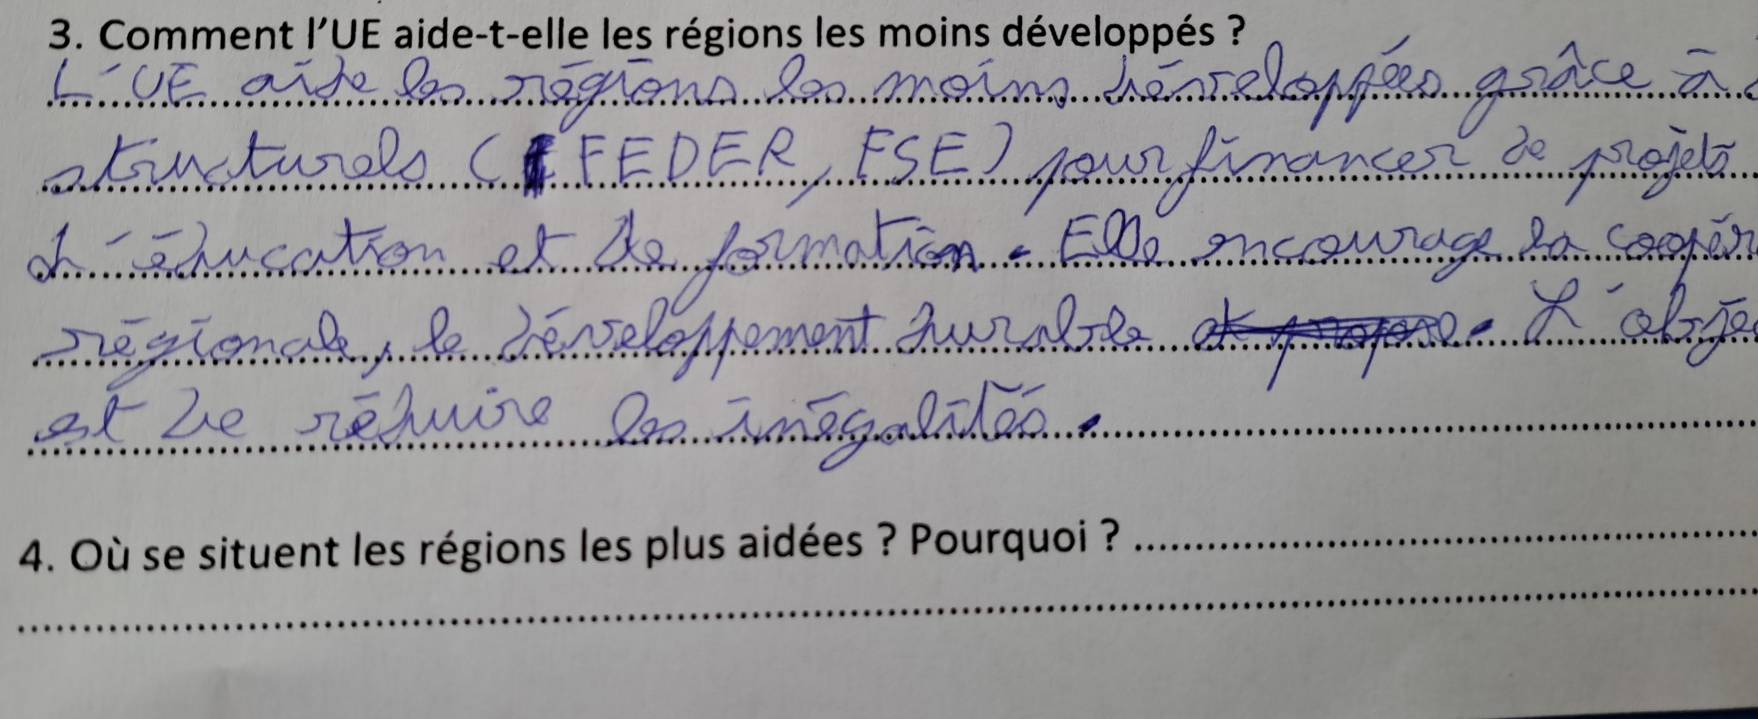 3. Comment l'UE aide-t-elle les régions les moins développés ?
L'UE aide les régions les moins développées grâce à
structurels (FEDER, FSE) pour financer de projets
d'éducation et de formation. Elle encourage la coopér
régionale, le développement durable et propose. L'obje
est de réduire les inégalités.
4. Où se situent les régions les plus aidées ? Pourquoi ?